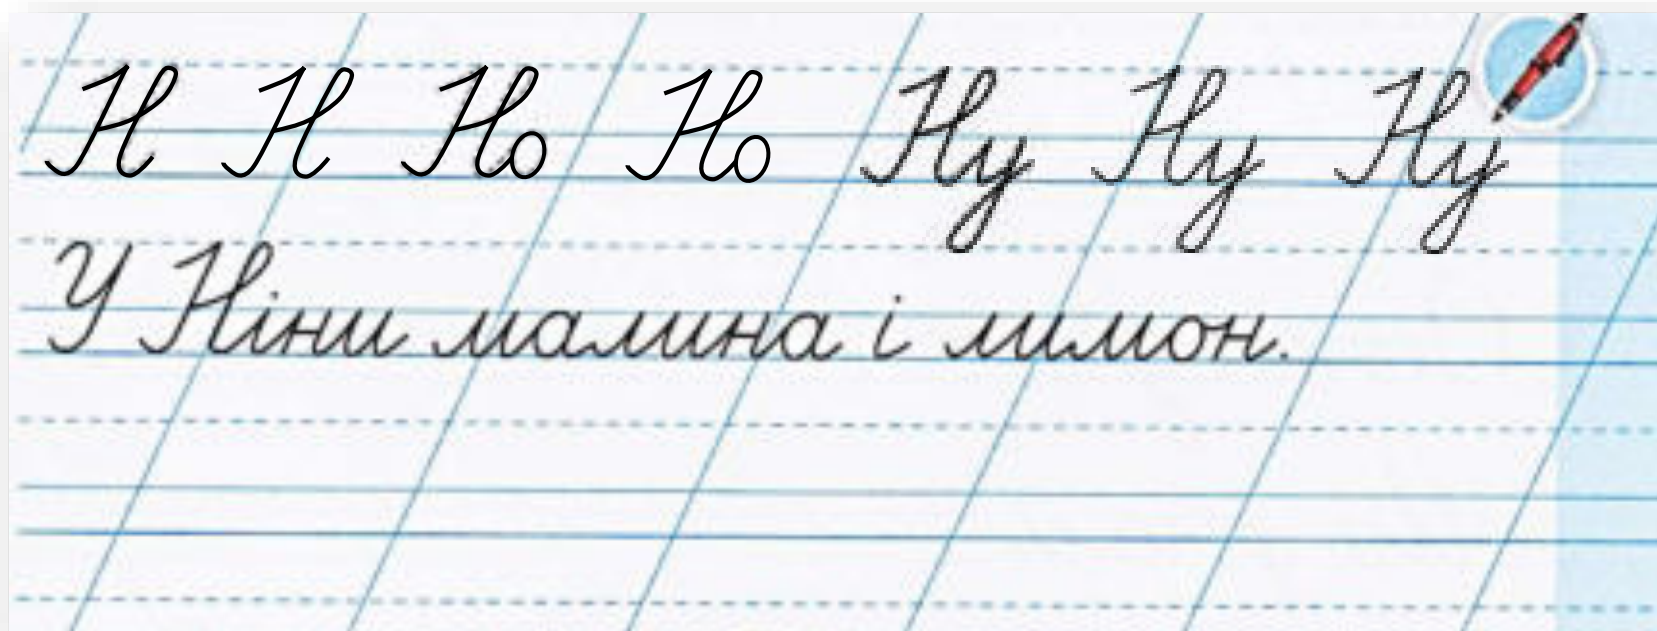 Н Н Но Но Ну Ну Ну
У Ніни малина і лимон.